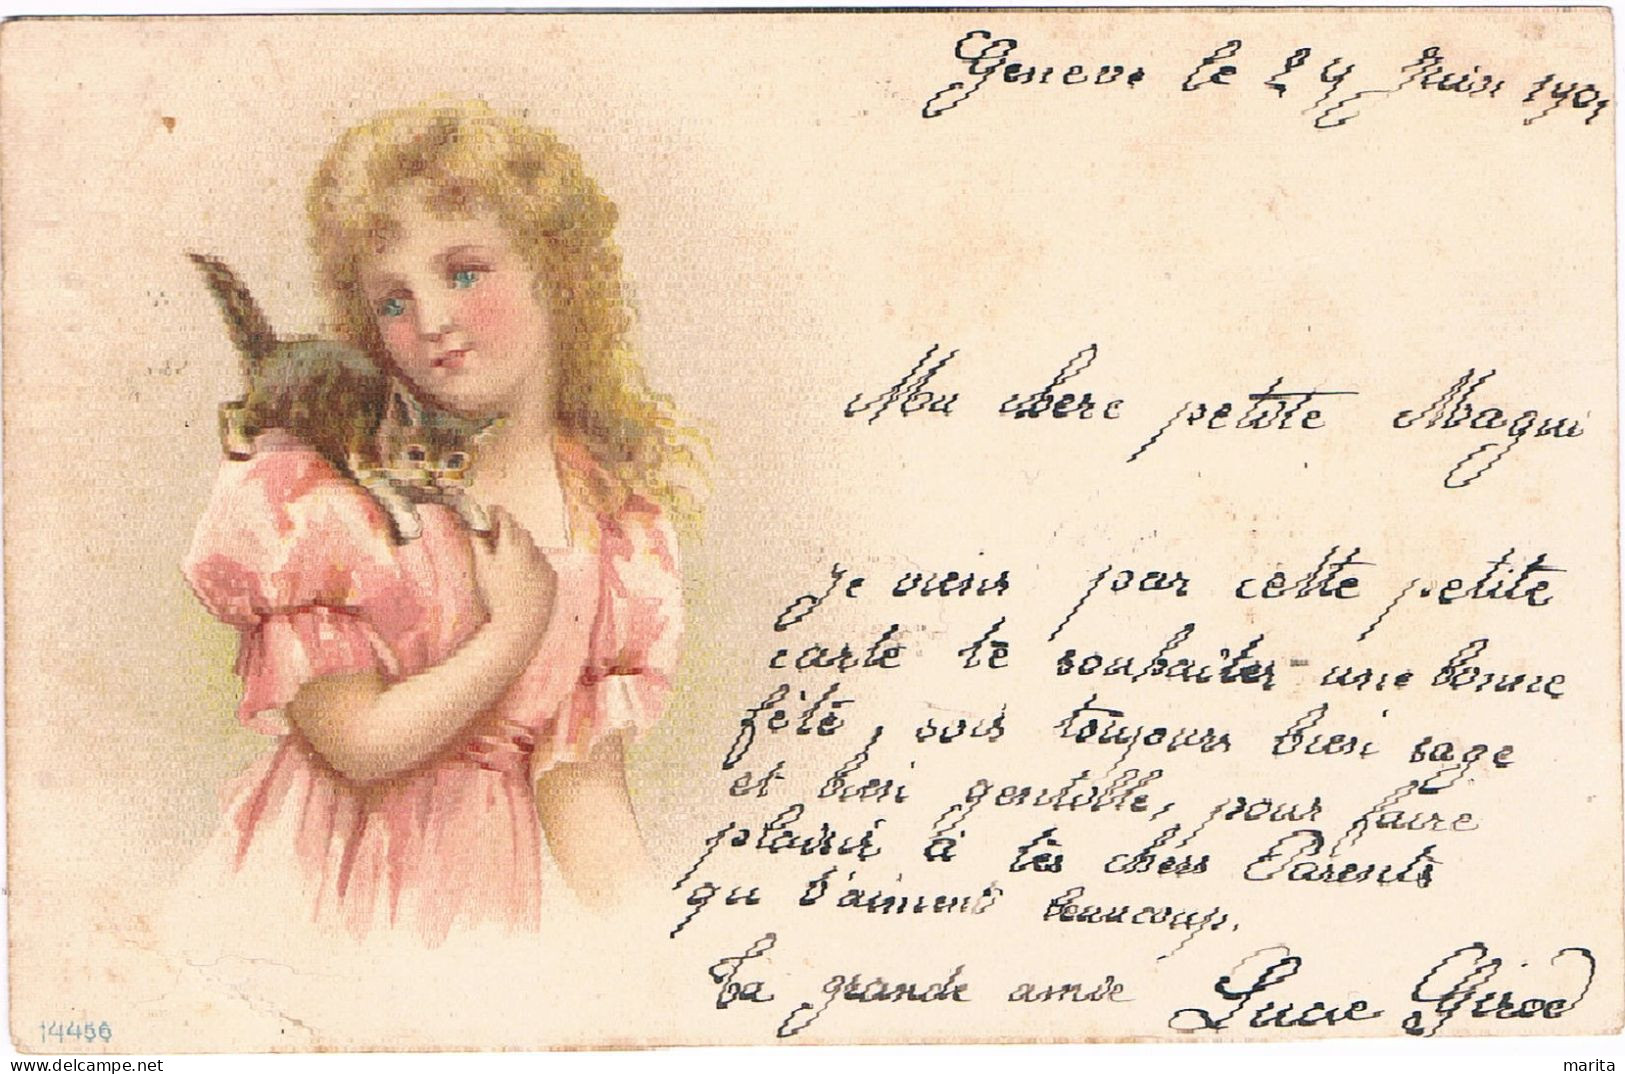 Geneve le 24 Juin 1901
Ma chere petite Magui
je viens par cette petite
carte te souhaiter une bonne
fête, sois toujours bien sage
et bien gentille, pour faire
plaisir à tes chers Parents
qui t'aiment beaucoup.
Ta grande amie Lucie Girod
14456
marita